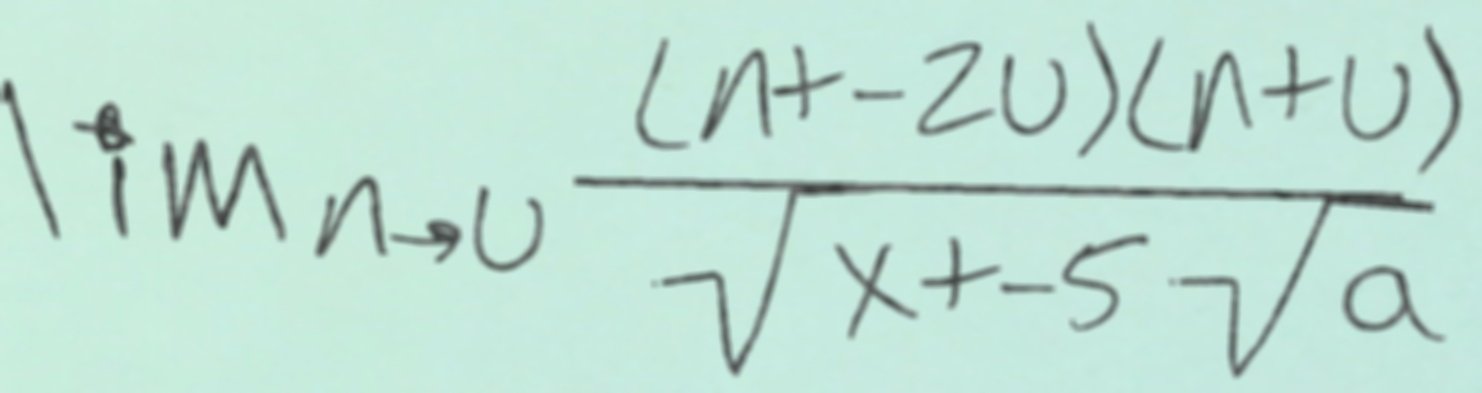 \lim_{n \to u} \frac{(n+-2u)(n+u)}{\sqrt{x+-5\sqrt{a}}}